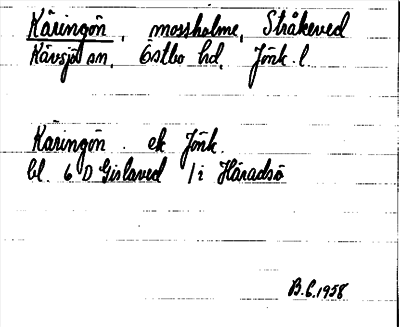 Käringön, mossholme, Stråkeved
Kävsjö sn, Östbo hd, Jönk. l.
Käringön ek Jönk.
bl. 6 D Gislaved 1 i Häradsö
B.E. 1958